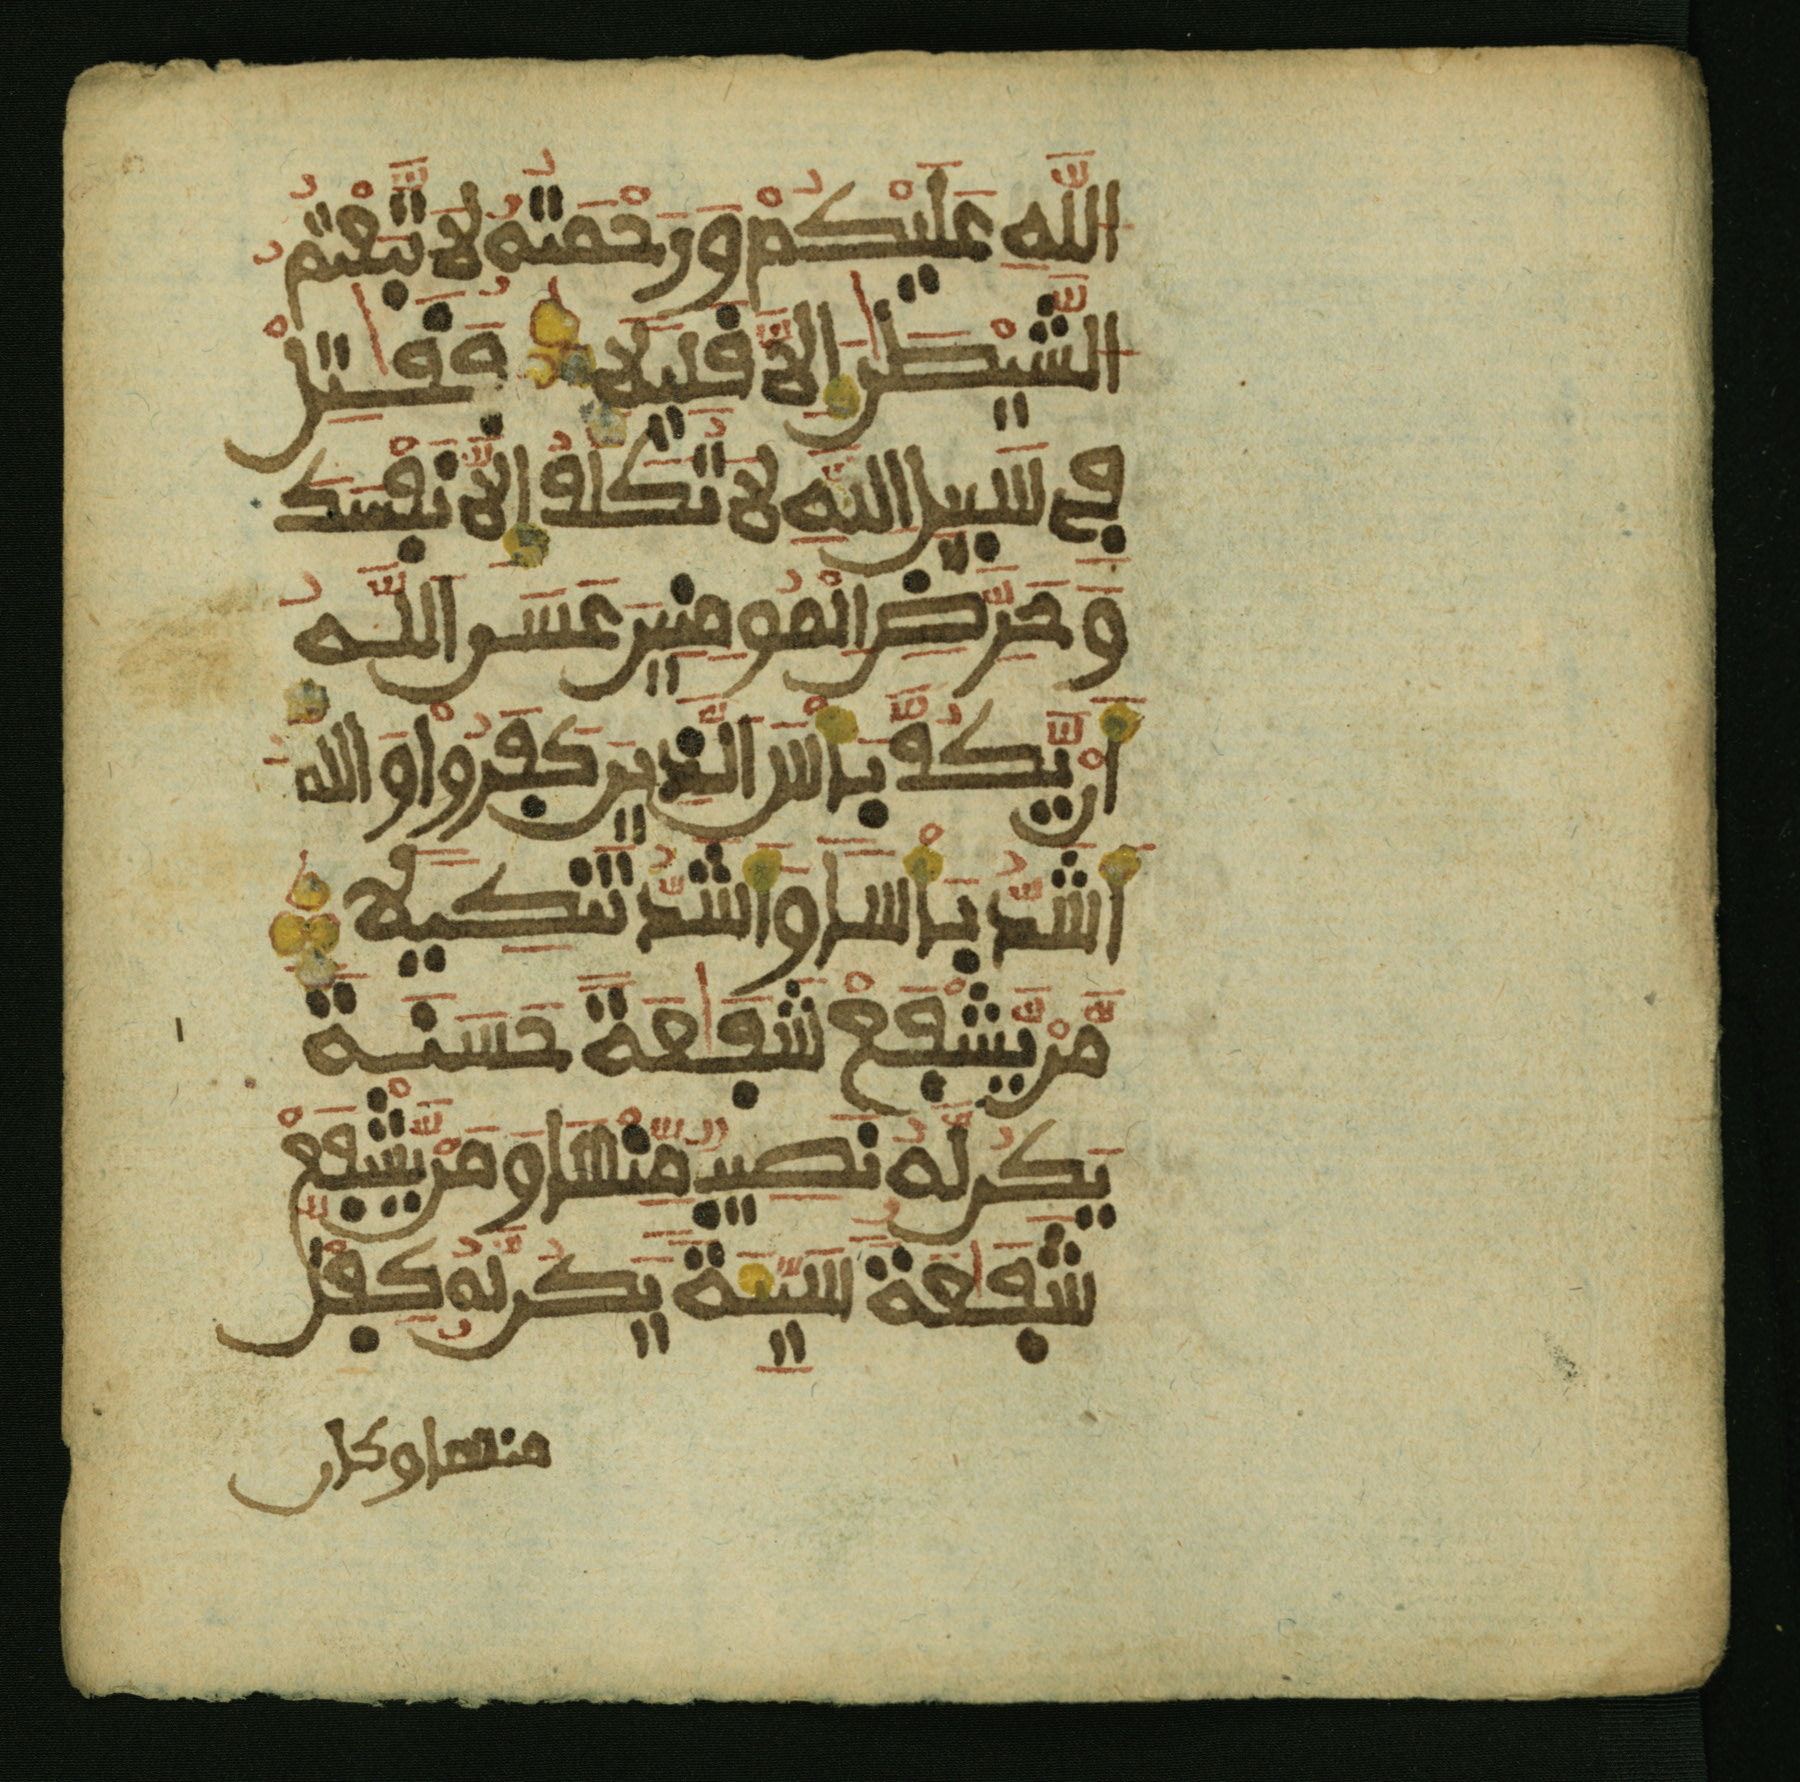 اللَّهِ عَلَيْكُمْ وَرَحْمَتُهُ لَاتَّبَعْتُمُ
الشَّيْطَٰنَ إِلَّا قَلِيلًا فَقَٰتِلْ
فِي سَبِيلِ اللَّهِ لَا تُكَلَّفُ إِلَّا نَفْسَكَ
وَحَرِّضِ الْمُومِنِينَ عَسَى اللَّهُ
أَنْ يَّكُفَّ بَأْسَ الَّذِينَ كَفَرُواْ وَاللَّهُ
أَشَدُّ بَأْسًا وَأَشَدُّ تَنْكِيلًا
مَّنْ يَّشْفَعْ شَفَٰعَةً حَسَنَةً
يَكُن لَّهُ نَصِيبٌ مِّنْهَا وَمَنْ يَّشْفَعْ
شَفَٰعَةً سَيِّئَةً يَكُن لَّهُ كِفْلٌ
منها وكان